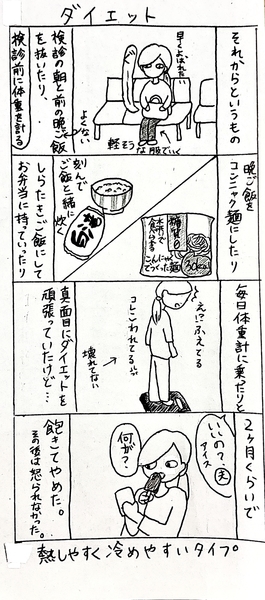 ダイエット
それからというもの
早くよばれたい…
検診の朝と前の晩ご飯
を抜いたり、
よくない
軽そう
な服でいく
検診前に体重を計る
晩ご飯を
コンニャク麺にしたり
糖質0
水洗で
食べれる
こんにゃく
でつくった麺
刻んで
ご飯と一緒に
炊く
しらたきご飯にして
お弁当に持っていったり
毎日体重計に乗だりと
え!?ふえてる
コレこわれてる…
壊れてない
真面目にダイエットを
頑張っていたけど…
2ヶ月くらいで
いいの?
夫
アイス
何が?
飽きてやめた。
その後は怒られなかった。
熱しやすく冷めやすいタイプ